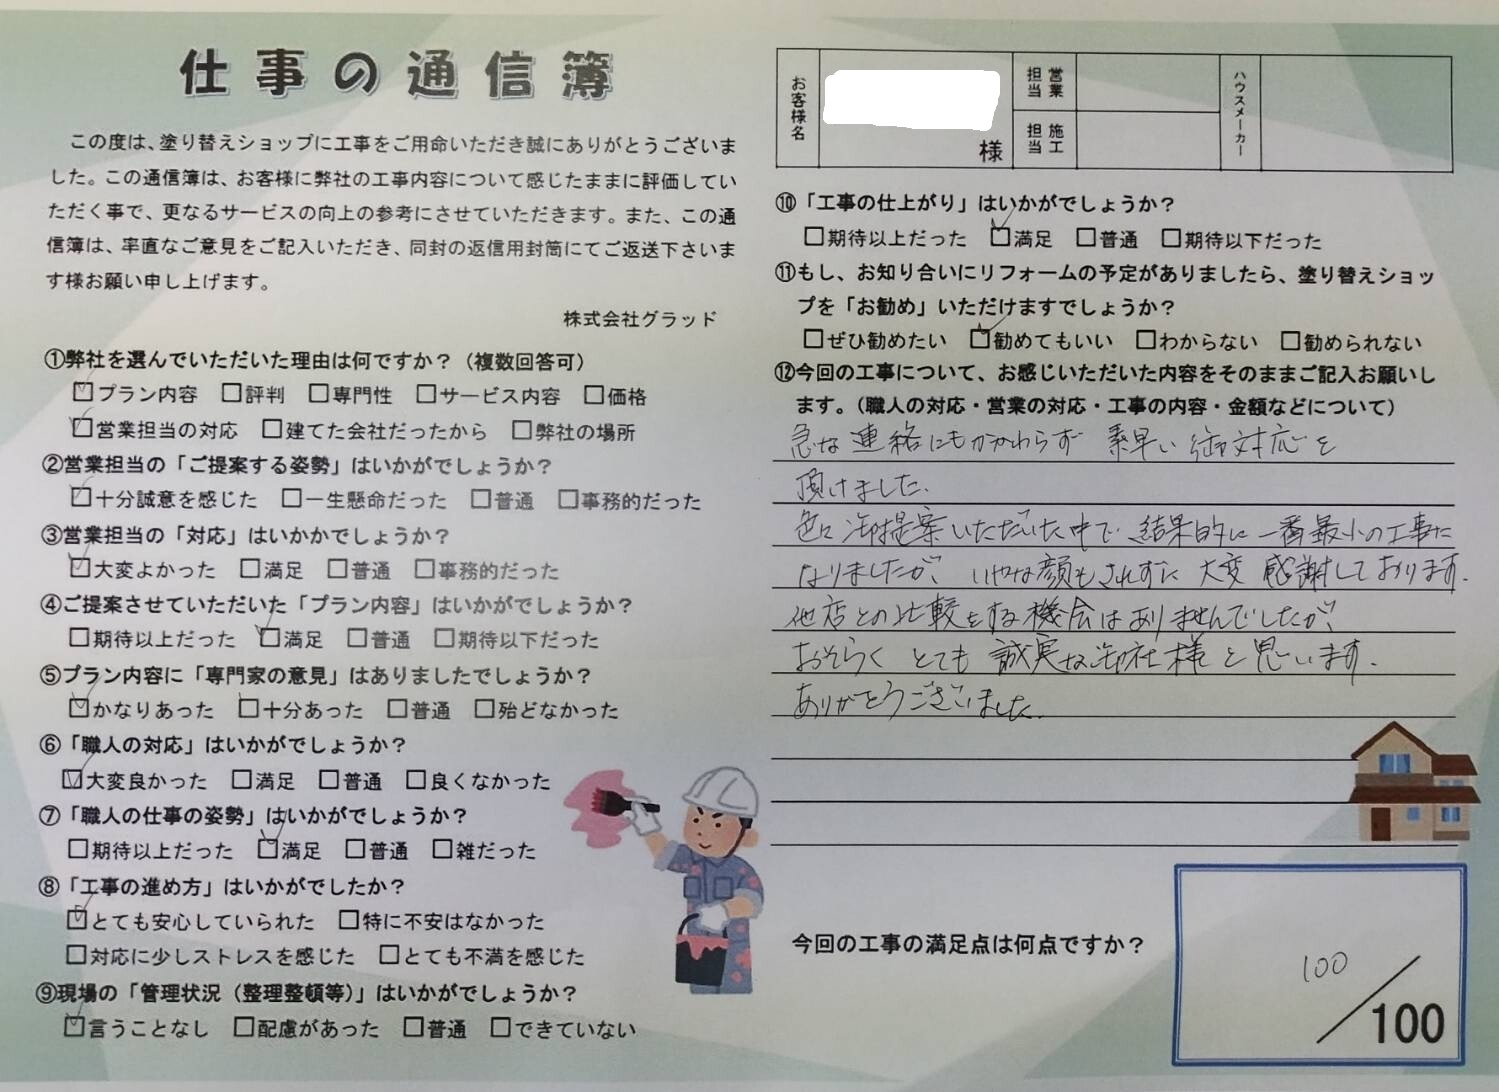 仕事の通信簿
この度は、塗り替えショップに工事をご用命いただき誠にありがとうございま
した。この通信簿は、お客様に弊社の工事内容について感じたままに評価してい
ただく事で、更なるサービスの向上の参考にさせていただきます。また、この通
信簿は、率直なご意見をご記入いただき、同封の返信用封筒にてご返送下さいま
す様お願い申し上げます。
株式会社グラッド
①弊社を選んでいただいた理由は何ですか？（複数回答可）
☑プラン内容 □評判 □専門性 □サービス内容 □価格
☑営業担当の対応 □建てた会社だったから □弊社の場所
②営業担当の「ご提案する姿勢」はいかがでしょうか？
☑十分誠意を感じた □一生懸命だった □普通 □事務的だった
③営業担当の「対応」はいかかでしょうか？
☑大変よかった □満足 □普通 □事務的だった
④ご提案させていただいた「プラン内容」はいかがでしょうか？
□期待以上だった ☑満足 □普通 □期待以下だった
⑤プラン内容に「専門家の意見」はありましたでしょうか？
☑かなりあった ☑十分あった □普通 □殆どなかった
⑥「職人の対応」はいかがでしょうか？
☑大変良かった □満足 □普通 □良くなかった
⑦「職人の仕事の姿勢」はいかがでしょうか？
□期待以上だった ☑満足 □普通 □雑だった
⑧「工事の進め方」はいかがでしたか？
☑とても安心していられた □特に不安はなかった
□対応に少しストレスを感じた □とても不満を感じた
⑨現場の「管理状況（整理整頓等）」はいかがでしょうか？
☑言うことなし □配慮があった □普通 □できていない
お客様名 様 営業担当 施工担当 ハウスメーカー
⑩「工事の仕上がり」はいかがでしょうか？
□期待以上だった ☑満足 □普通 □期待以下だった
⑪もし、お知り合いにリフォームの予定がありましたら、塗り替えショッ
プを「お勧め」いただけますでしょうか？
□ぜひ勧めたい ☑勧めてもいい □わからない □勧められない
⑫今回の工事について、お感じいただいた内容をそのままご記入お願いし
ます。（職人の対応・営業の対応・工事の内容・金額などについて）
急な連絡にもかかわらず 素早い御対応を
頂けました。
色々御提案いただいた中で、結果的に一番最小の工事に
なりましたが、いやな顔もされずに大変感謝しております。
他店との比較をする機会はありませんでしたが、
おそらく とても 誠実な御社様と思います。
ありがとうございました。
今回の工事の満足点は何点ですか？
100／100